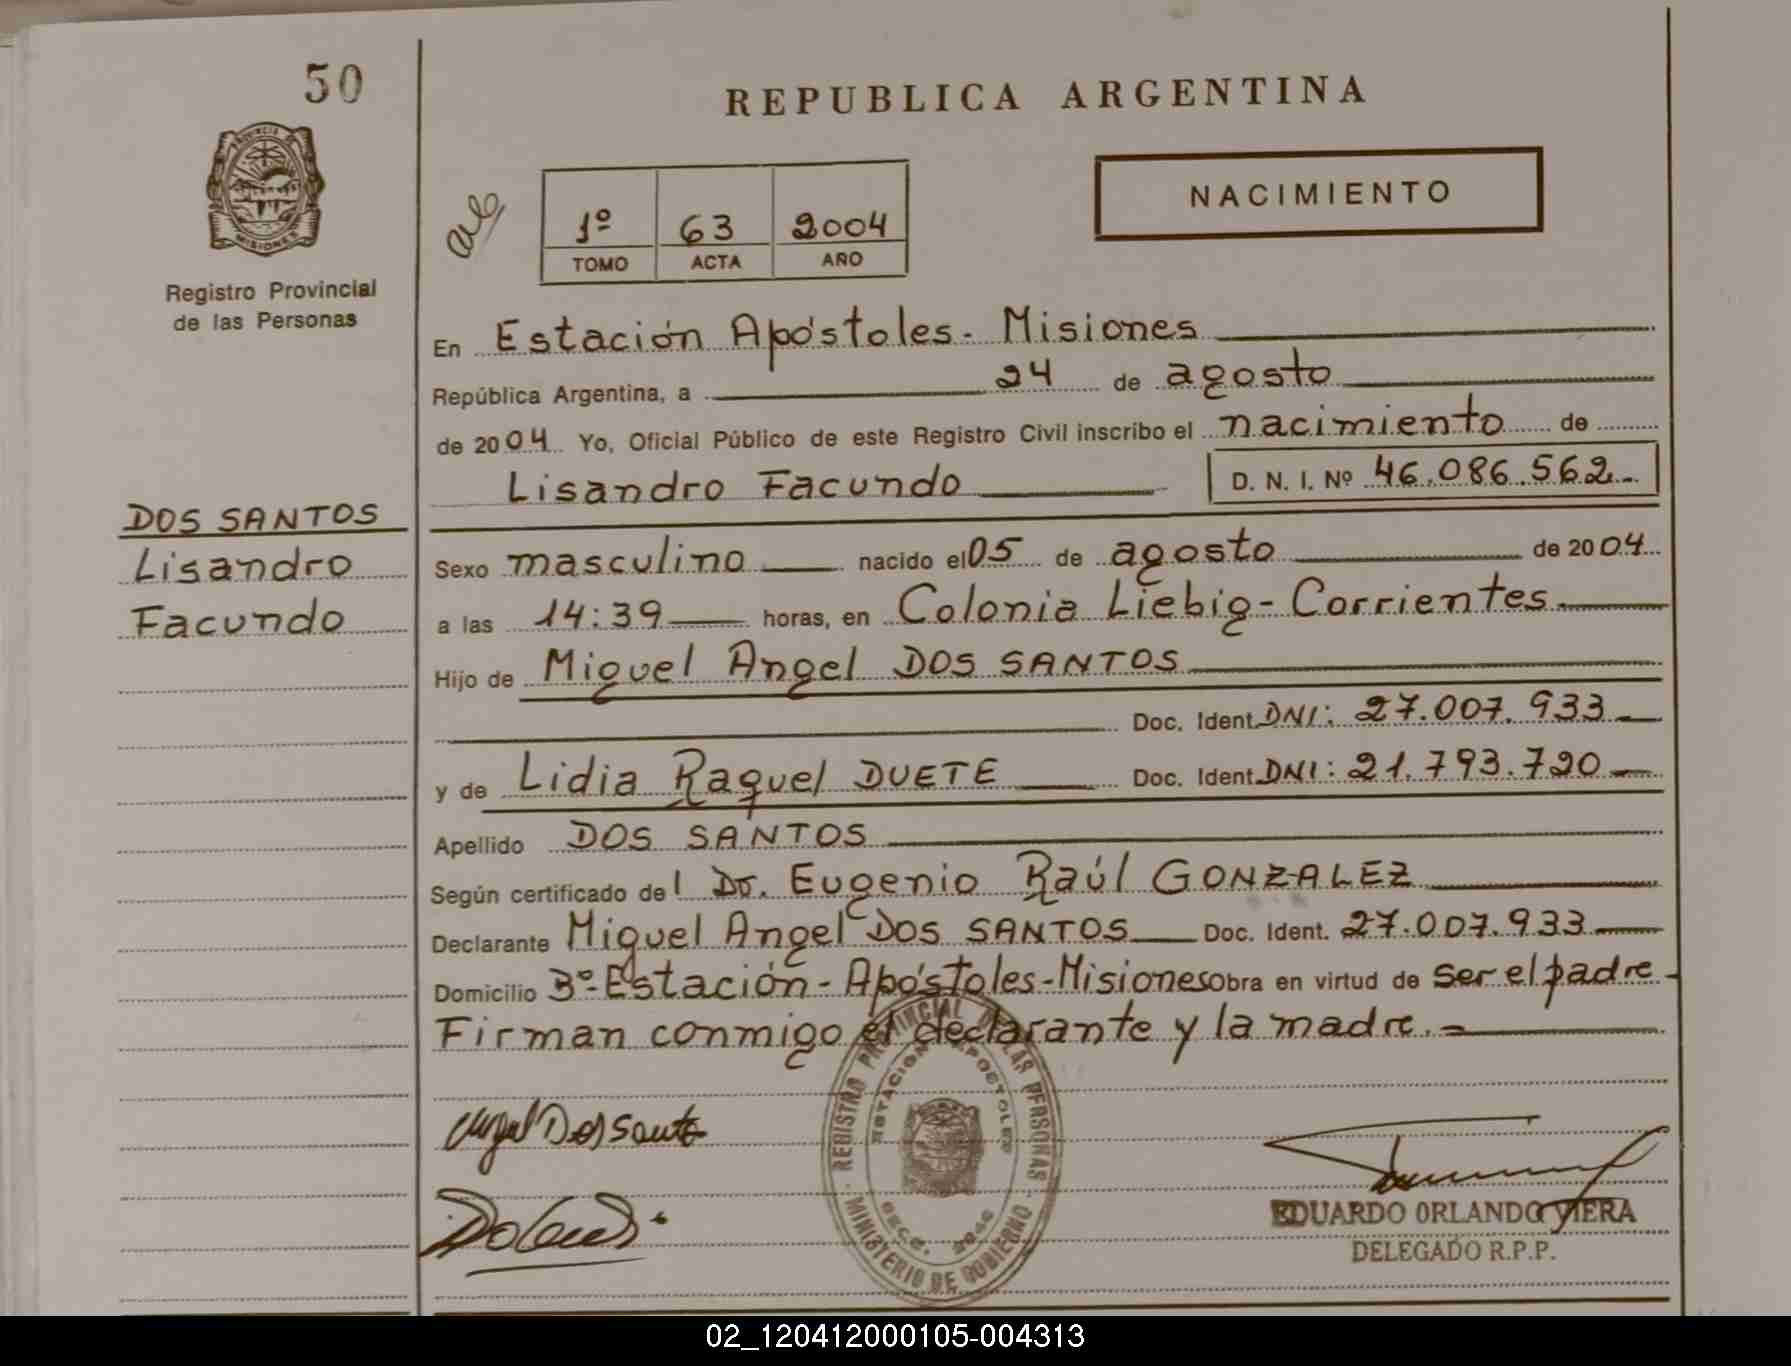 50
REPUBLICA ARGENTINA
NACIMIENTO
1º 63 2004
TOMO ACTA AÑO
PROVINCIA DE
MISIONES
Registro Provincial
de las Personas
En Estación Apóstoles - Misiones
República Argentina, a 24 de agosto
de 2004 Yo, Oficial Público de este Registro Civil inscribo el nacimiento de
Lisandro Facundo D. N. I. Nº 46.086.562.-
DOS SANTOS
Lisandro
Facundo
Sexo masculino nacido el 05 de agosto de 2004
a las 14:39 horas, en Colonia Liebig - Corrientes
Hijo de Miguel Angel DOS SANTOS
Doc. Ident. DNI: 27.007.933
y de Lidia Raquel DUETE Doc. Ident. DNI: 21.793.720
Apellido DOS SANTOS
Según certificado del Dr. Eugenio Raúl GONZALEZ
Declarante Miguel Angel DOS SANTOS Doc. Ident. 27.007.933
Domicilio Bº Estación - Apóstoles - Misiones obra en virtud de ser el padre -
Firman conmigo el declarante y la madre. -
REGISTRO PROVINCIAL DE LAS PERSONAS
ESTACION APOSTOLES
MINISTERIO DE GOBIERNO
Angel Dos Santo
EDUARDO ORLANDO VIERA
DELEGADO R.P.P.
02_120412000105-004313